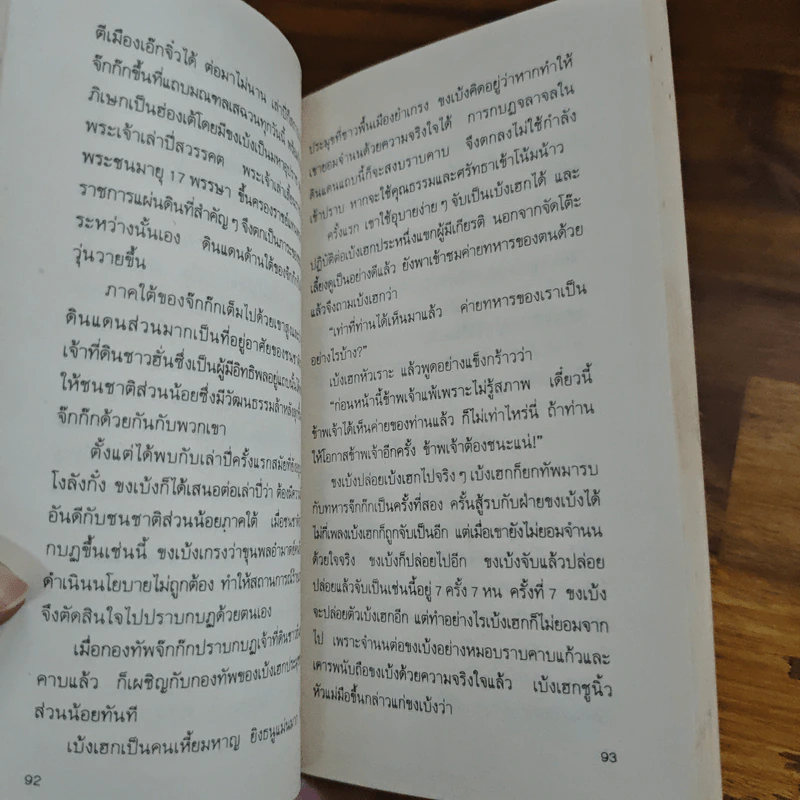 ตีเมืองเอ๊กจิ๋วได้ ต่อมาไม่นาน เล่าปี่
จ๊กก๊กขึ้นที่แถบมณฑลเสฉวนทุกวันนี้
ภิเษกเป็นฮ่องเต้โดยมีขงเบ้งเป็นมหา
พระเจ้าเล่าปี่สวรรคต พระเจ้าเล่าเสี้ยน
พระชนมายุ 17 พรรษา ขึ้นครองราชย์
ราชการแผ่นดินที่สำคัญๆ จึงตกเป็นภาระ
ระหว่างนั้นเอง ดินแดนด้านใต้ของจ๊กก๊ก
วุ่นวายขึ้น
ภาคใต้ของจ๊กก๊กเต็มไปด้วยเขาสูง
ดินแดนส่วนมากเป็นที่อยู่อาศัยของชน
เจ้าที่ดินชาวฮั่นซึ่งเป็นผู้มีอิทธิพลอยู่แถบนั้น
ให้ชนชาติส่วนน้อยซึ่งมีวัฒนธรรมล้าหลัง
จ๊กก๊กด้วยกันกับพวกเขา
ตั้งแต่ได้พบกับเล่าปี่ครั้งแรกสมัยที่ยัง
โงลังกั๋ง ขงเบ้งก็ได้เสนอต่อเล่าปี่ว่า ต้องมี
อันดีกับชนชาติส่วนน้อยภาคใต้ เมื่อ
กบฏขึ้นเช่นนี้ ขงเบ้งเกรงว่าขุนพลอำมาตย์
ดำเนินนโยบายไม่ถูกต้อง ทำให้สถานการณ์
จึงตัดสินใจไปปราบกบฏด้วยตนเอง
เมื่อกองทัพจ๊กก๊กปราบกบฏเจ้าที่ดินชาว
คาบแล้ว ก็เผชิญกับกองทัพของเบ้งเฮก
ส่วนน้อยทันที
เบ้งเฮกเป็นคนเหี้ยมหาญ ยิงธนูแม่น
92
ประมุขที่ชาวพื้นเมืองยำเกรง ขงเบ้งคิดอยู่ว่าหากทำให้
เขายอมจำนนด้วยความจริงใจได้ การกบฏจลาจลใน
ดินแดนแถบนี้ก็จะสงบราบคาบ จึงตกลงไม่ใช้กำลัง
เข้าปราบ หากจะใช้คุณธรรมและศรัทธาเข้าโน้มน้าว
ครั้งแรก เขาใช้อุบายง่ายๆ จับเป็นเบ้งเฮกได้ และ
ปฏิบัติต่อเบ้งเฮกประหนึ่งแขกผู้มีเกียรติ นอกจากจัดโต๊ะ
เลี้ยงดูเป็นอย่างดีแล้ว ยังพาเข้าชมค่ายทหารของตนด้วย
แล้วจึงถามเบ้งเฮกว่า
“เท่าที่ท่านได้เห็นมาแล้ว ค่ายทหารของเราเป็น
อย่างไรบ้าง?”
เบ้งเฮกหัวเราะ แล้วพูดอย่างแข็งกร้าวว่า
“ก่อนหน้านี้ข้าพเจ้าแพ้เพราะไม่รู้สภาพ เดี๋ยวนี้
ข้าพเจ้าได้เห็นค่ายของท่านแล้ว ก็ไม่เท่าไหร่นี่ ถ้าท่าน
ให้โอกาสข้าพเจ้าอีกครั้ง ข้าพเจ้าต้องชนะแน่!”
ขงเบ้งปล่อยเบ้งเฮกไปจริงๆ เบ้งเฮกก็ยกทัพมารบ
กับทหารจ๊กก๊กเป็นครั้งที่สอง ครั้นสู้รบกับฝ่ายขงเบ้งได้
ไม่กี่เพลงเบ้งเฮกก็ถูกจับเป็นอีก แต่เมื่อเขายังไม่ยอมจำนน
ด้วยใจจริง ขงเบ้งก็ปล่อยไปอีก ขงเบ้งจับแล้วปล่อย
ปล่อยแล้วจับเป็นเช่นนี้อยู่ 7 ครั้ง 7 หน ครั้งที่ 7 ขงเบ้ง
จะปล่อยตัวเบ้งเฮกอีก แต่ทำอย่างไรเบ้งเฮกก็ไม่ยอมจาก
ไป เพราะจำนนต่อขงเบ้งอย่างหมอบราบคาบแก้วและ
เคารพนับถือขงเบ้งด้วยความจริงใจแล้ว เบ้งเฮกชูนิ้ว
หัวแม่มือขึ้นกล่าวแก่ขงเบ้งว่า
93